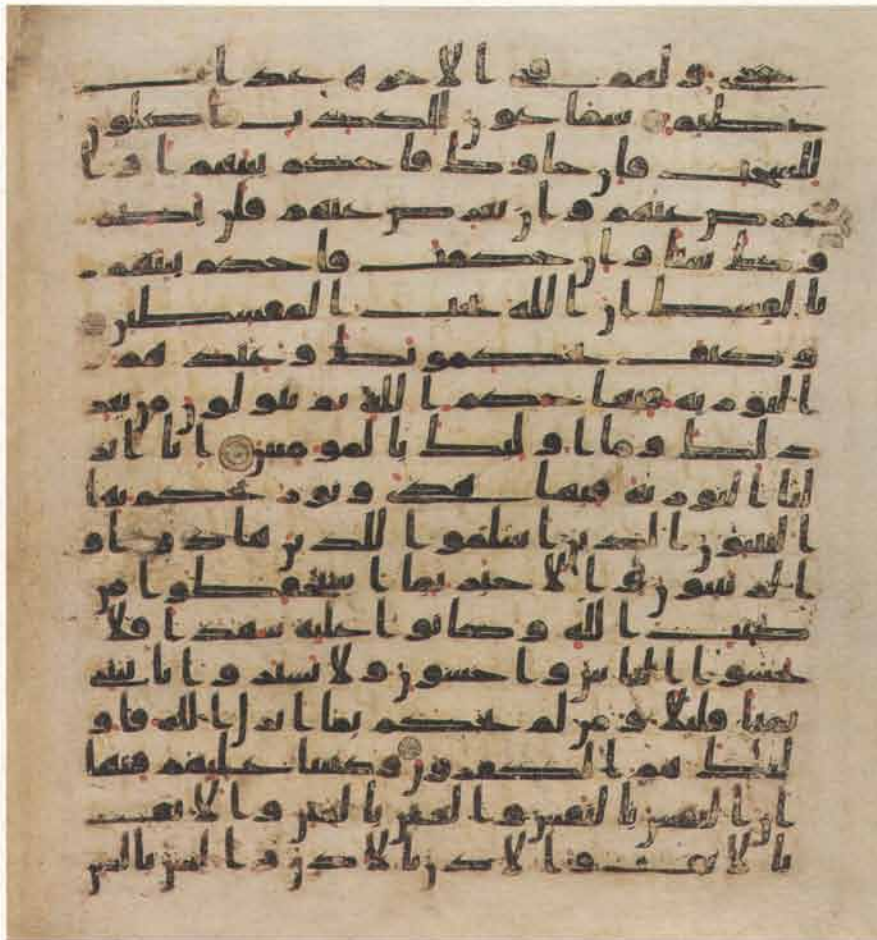 خزى ولهم فى الاخره عذاب
عظيم سمعون للكذب اكلون
للسحت فان جاوك فاحكم بينهم او ا
عرض عنهم وان تعرض عنهم فلن يضر
وك شيا وان حكمت فاحكم بينهم
بالقسط ان الله يحب المقسطين
وكيف يحكمونك وعندهم
التوريه فيها حكم الله ثم يتولون من بعد
ذلك وما اوليك بالمومنين انا انز
لنا التوريه فيها هدى ونور يحكم بها
النبيون الذين اسلموا للذين هادوا و
الربنيون والاحبار بما استحفظوا من
كتب الله وكانوا عليه شهدا فلا
تخشوا الناس واخشون ولا تشتروا بايتى
ثمنا قليلا ومن لم يحكم بما انزل الله فاو
ليك هم الكفرون وكتبنا عليهم فيها
ان النفس بالنفس والعين بالعين والانف
بالانف والاذن بالاذن والسن بالسن